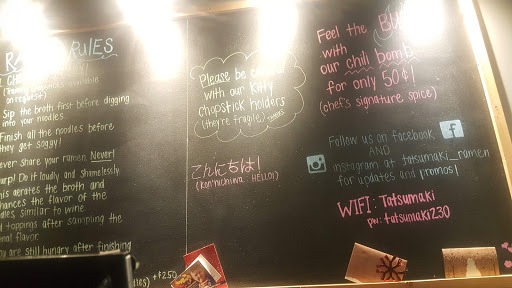 RULES
on request)
Sip the broth first before digging
into your noodles.
Finish all the noodles before
they get soggy!
never share your ramen. Never!
Slurp! Do it loudly and shamelessly.
this aerates the broth and
enhances the flavor of the
noodles, similar to wine.
toppings after sampling the
flavor.
you are still hungry after finishing
+$2.50
Please be
with our Kitty
chopstick holders
(they're fragile)
こんにちは!
(kon'nichiwa: HELLO!)
Feel the
with
our chili bomb
for only 50¢!
(chef's signature spice)
Follow us on facebook
AND
instagram at tatsumaki_ramen
for updates and promos!
WIFI: Tatsumaki
pw: tatsumaki230